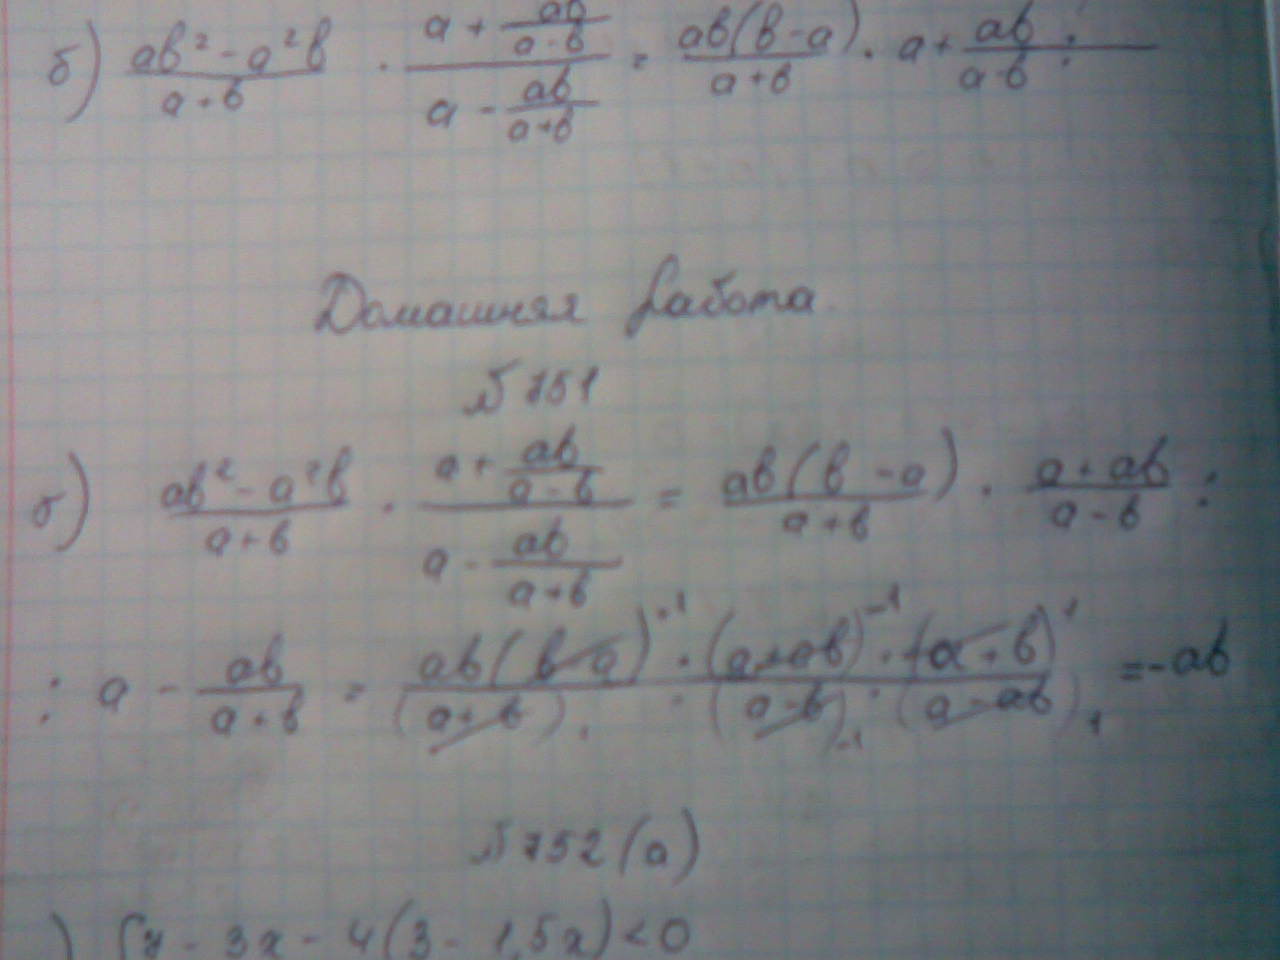 б) \frac{ab² - a²b}{a + b} · \frac{a + \frac{ab}{a - b}}{a - \frac{ab}{a + b}} = \frac{ab(b - a)}{a + b} · a + \frac{ab}{a - b} :
Домашняя работа.
№ 751
б) \frac{ab² - a²b}{a + b} · \frac{a + \frac{ab}{a - b}}{a - \frac{ab}{a + b}} = \frac{ab(b - a)}{a + b} · \frac{a + ab}{a - b} :
: a - \frac{ab}{a + b} = \frac{ab(b - a)^{-1} · (a + ab)^{-1} · (a + b)^{1}}{(a + b)_{1} · (a - b)_{-1} · (a - ab)_{1}} = -ab
№ 752 (а)
) 7 - 3x - 4(3 - 1,5x) < 0